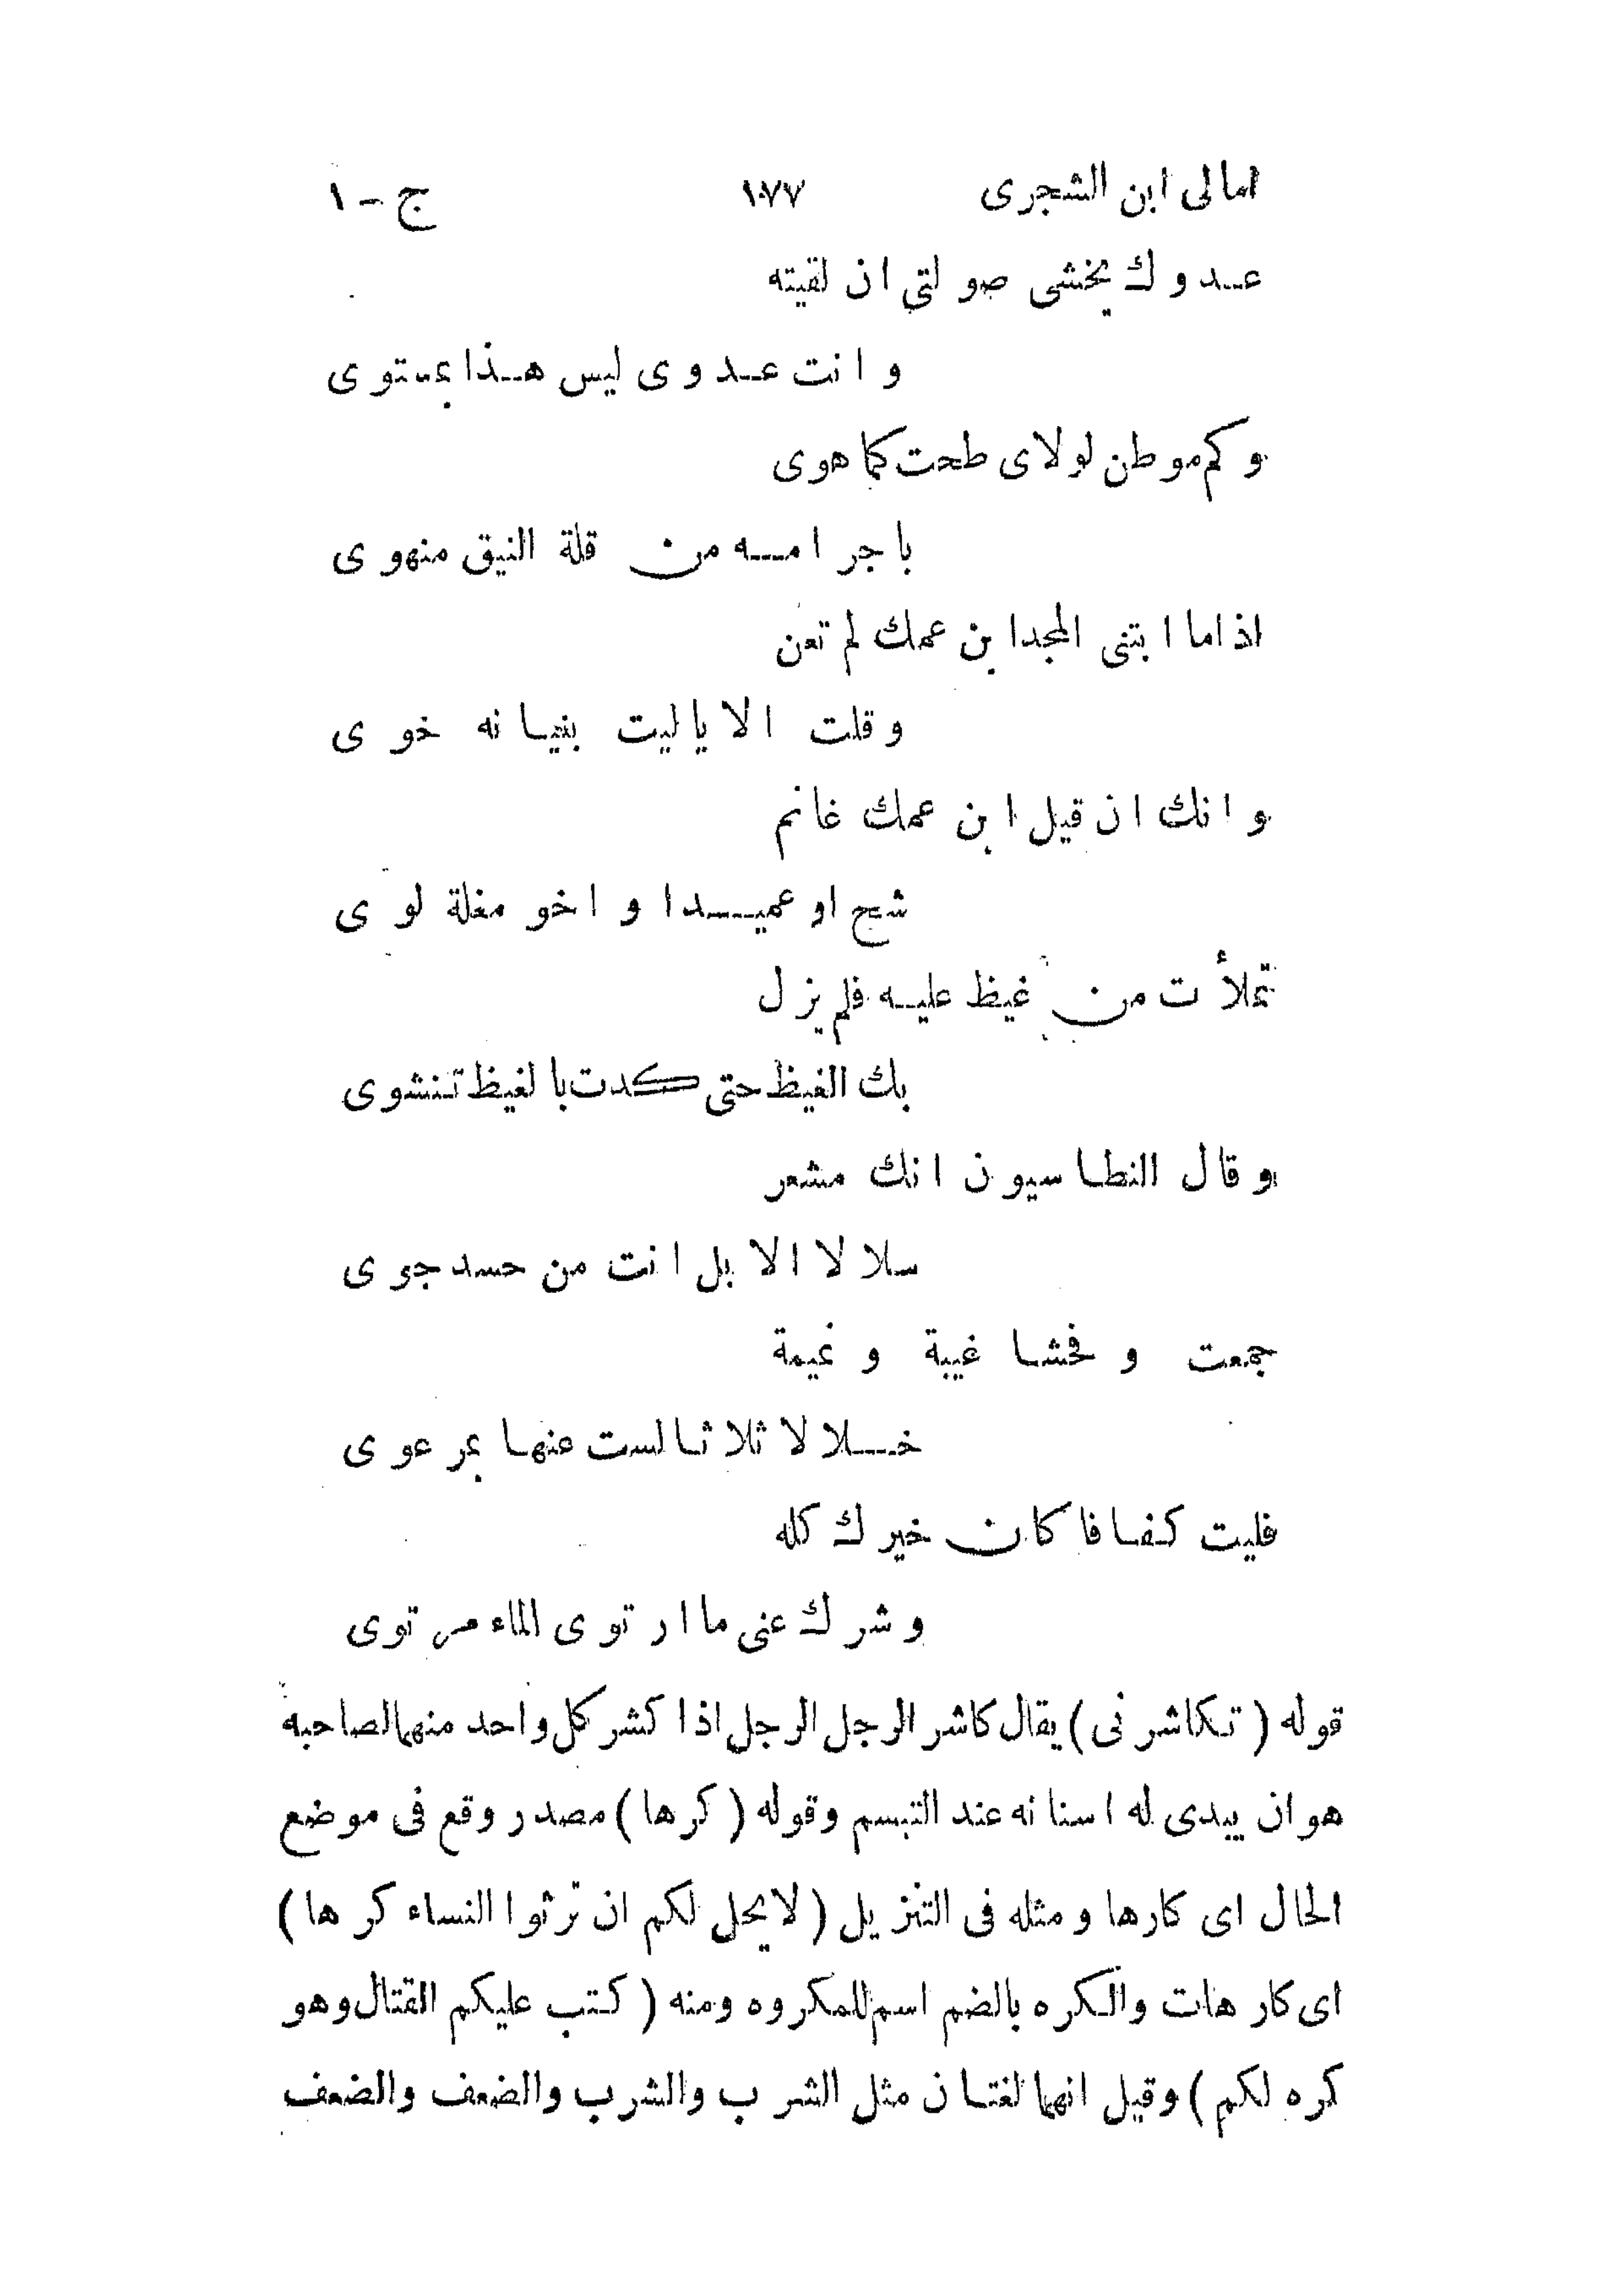 امالى ابن الشجرى ١٧٧ ج - ١
عدوك يخشى صولتى ان لقيته
وانت عدوى ليس هذا بمستوى
وكم موطن لولاى طحت كما هوى
باجرامه من قلة النيق منهوى
اذا ما ابتنى المجد ابن عمك لم تعن
وقلت الا يا ليت بنيانه خوى
وانك ان قيل ابن عمك غانم
شج او عميدا واخو مغلة لوى
تملأت من غيظ عليه فلم يزل
بك الغيظ حتى كدت بالغيظ تنشوى
وقال النطاسيون انك مشعر
سلالا الا بل انت من حسد جوى
جمعت وفحشا غيبة ونميمة
خلالا ثلاثا لست عنها بمرعوى
فليت كفافا كان خيرك كله
وشرك عنى ما ارتوى الماء مرتوى
قوله ( تكاشرنى ) يقال كاشر الرجل الرجل اذا كشر كل واحد منهما لصاحبه
هو ان يبدى له اسنانه عند التبسم وقوله ( كرها ) مصدر وقع فى موضع
الحال اى كارها ومثله فى التنزيل ( لا يحل لكم ان ترثوا النساء كرها )
اى كارهات والكره بالضم اسم للمكروه ومنه ( كتب عليكم القتال وهو
كره لكم ) وقيل انهما لغتان مثل الشرب والشرب والضعف والضعف